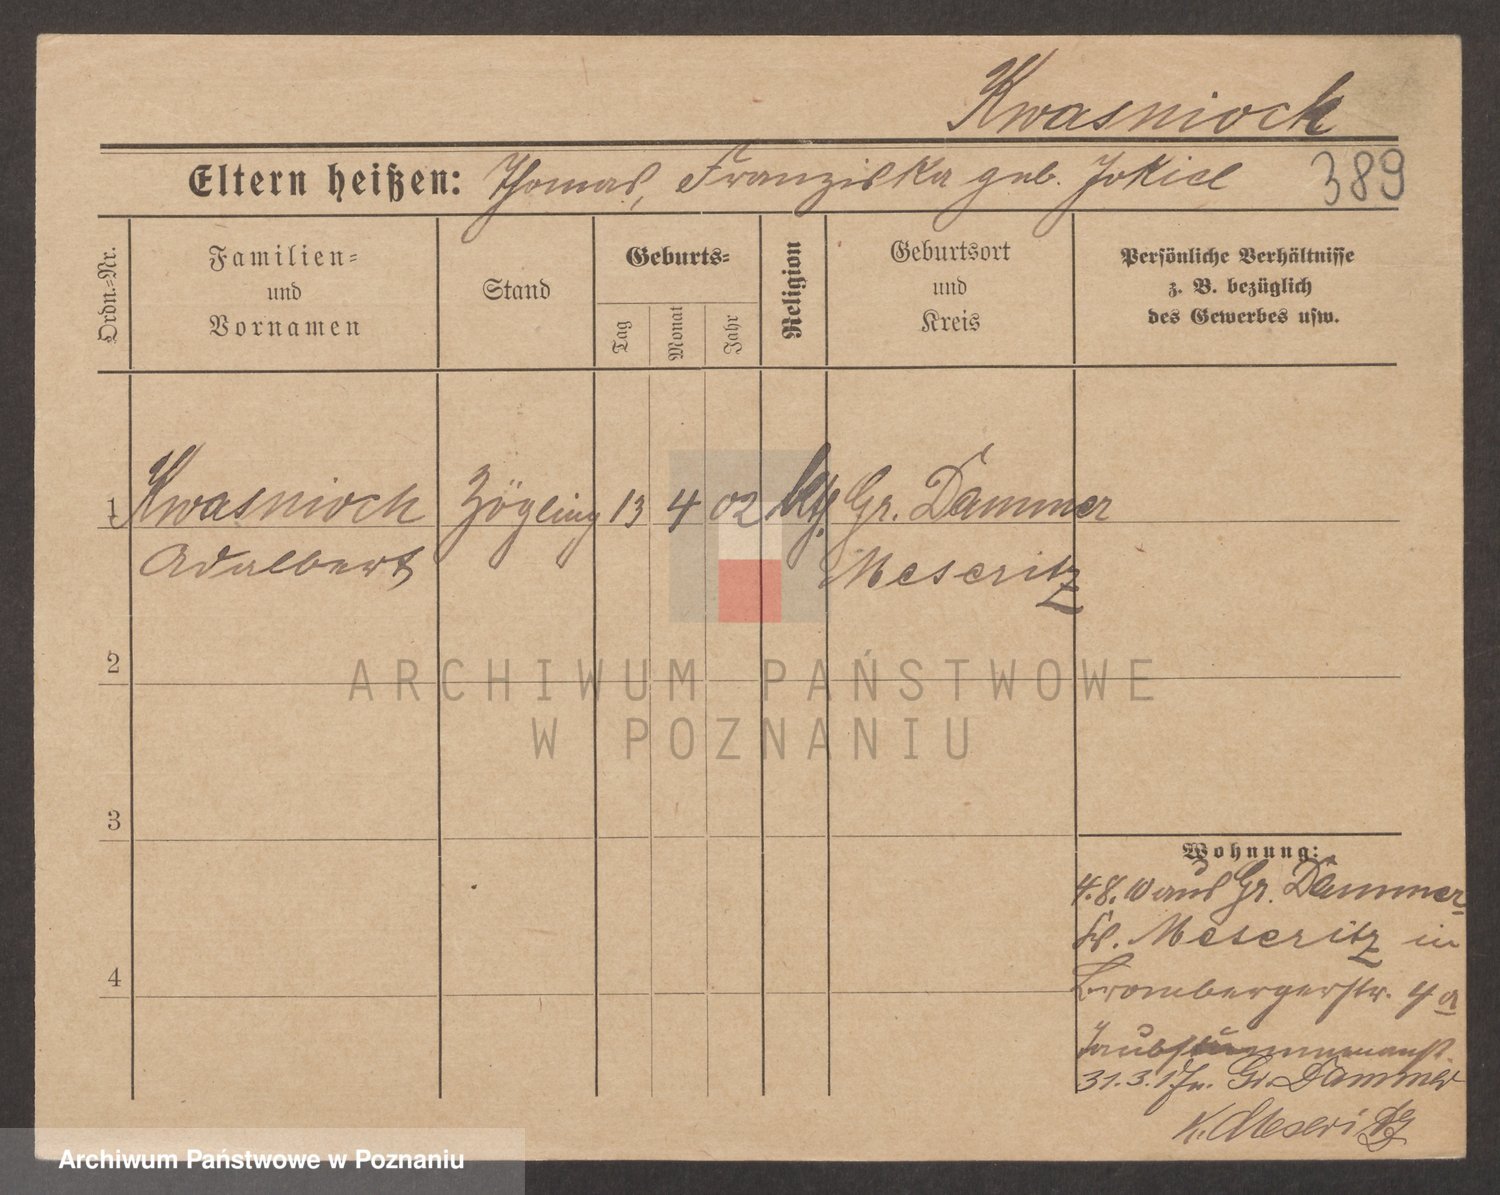 Kwasnioch
Eltern heißen: Thomas, Franziska geb. Jokiel 389
Ordn.=Nr.
Familien=
und
Vornamen
Stand
Geburts=
Tag
Monat
Jahr
Religion
Geburtsort
und
Kreis
Persönliche Verhältnisse
z. B. bezüglich
des Gewerbes usw.
1 Kwasnioch Zögling 13 4 02 kth. Gr. Dammer
Adalbert Meseritz
2
ARCHIWUM PAŃSTWOWE
W POZNANIU
3
4
Wohnung:
4.8.10 aus Gr. Dammer
Meseritz in
Brombergerstr. 4a
Taubstummenanst.
31.3.17 n. Gr. Dammer
K. Meseritz
Archiwum Państwowe w Poznaniu